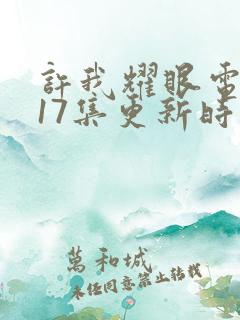 許我耀眼電
17集更新時
萬和城
未經同意禁止轉載